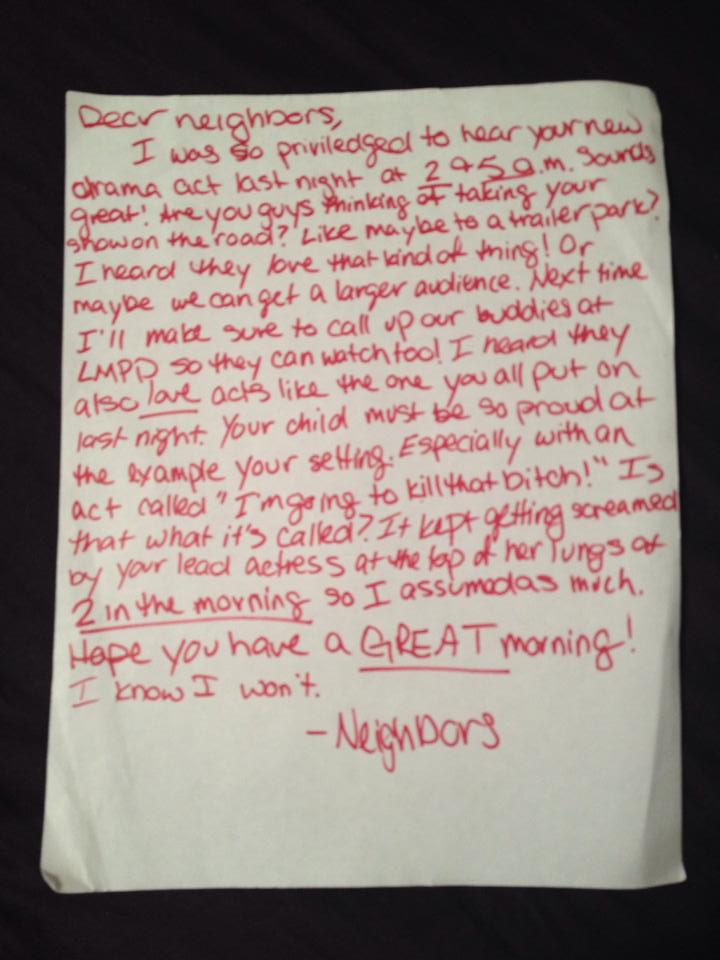 Dear neighbors,
I was so priviledged to hear your new
drama act last night at 2 45 a.m. Sounds
great! Are you guys thinking of taking your
show on the road? Like maybe to a trailer park?
I heard they love that kind of thing! Or
maybe we can get a larger audience. Next time
I'll make sure to call up our buddies at
LMPD so they can watch too! I heard they
also love acts like the one you all put on
last night. Your child must be so proud at
the example your setting. Especially with an
act called "I'm going to kill that bitch!" Is
that what it's called? It kept getting screamed
by your lead actress at the top of her lungs at
2 in the morning so I assumed as much.
Hope you have a GREAT morning!
I know I won't.
- Neighbors